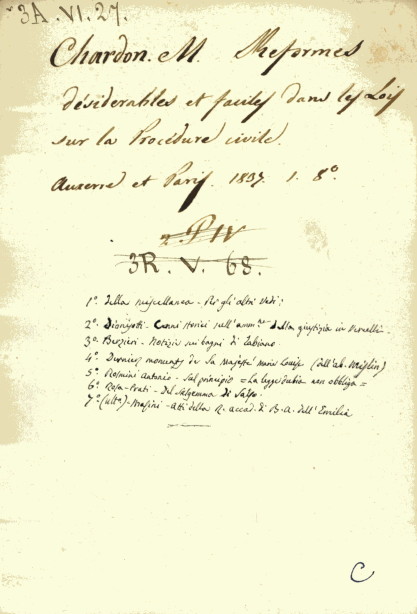 3A. VI. 27.
Chardon. M. Reformes
désiderables et faciles dans les Lois
sur la Procédure civile.
Auxerre et Paris. 1837. 1. 8°.
2. P. IV
3R. V. 68.
1°. della miscellanea - Per gli altri vedi:
2°. Dionisotti - Cenni storici sull'amm.ne della giustizia in Vercelli
3°. Berzieri - Notizie sui bagni di Tabiano.
4°. Derniers moments de Sa Majesté Marie Louise (dell'ab. Mislin)
5°. Rosmini Antonio - Sul principio = La legge dubia non obbliga =
6°. Rosa-Prati - Del Salgemma di Salso.
7°. (ult.a) - Masini - Atti della R. accad. di B. A. dell'Emilia
C